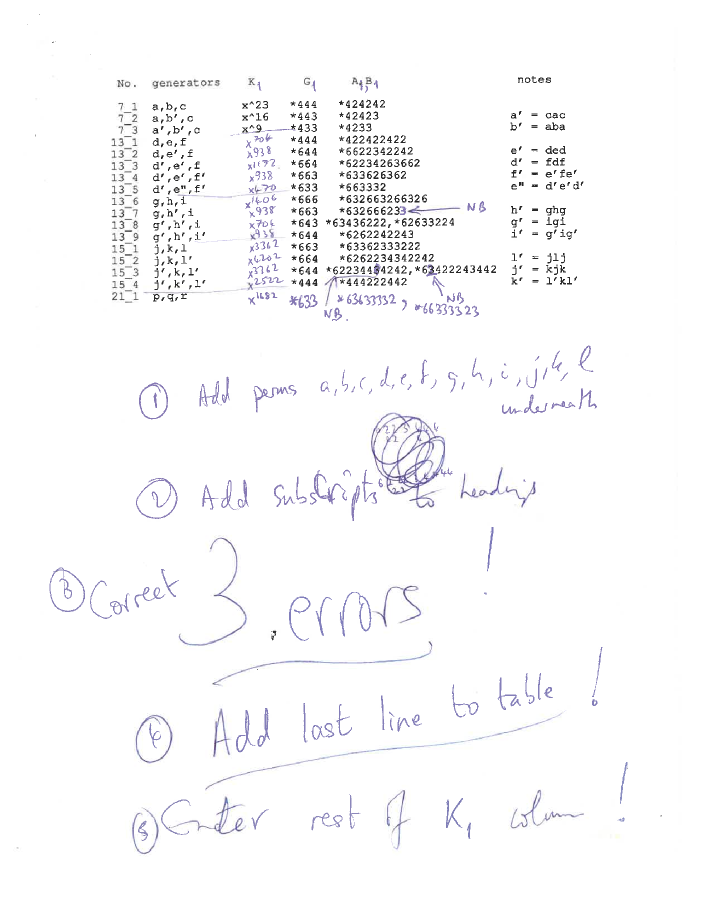 No. generators K1 G1 A1,B1 notes
7_1 a,b,c x^23 *444 *424242
7_2 a,b',c x^16 *443 *42423 a' = cac
7_3 a',b',c x^9 *433 *4233 b' = aba
13_1 d,e,f x706 *444 *422422422
13_2 d,e',f x938 *644 *6622342242 e' = ded
13_3 d',e',f x1172 *664 *62234263662 d' = fdf
13_4 d',e',f' x938 *663 *633626362 f' = e'fe'
13_5 d',e",f' x470 *633 *663332 e" = d'e'd'
13_6 g,h,i x1406 *666 *632663266326
13_7 g,h',i x938 *663 *632666233 NB h' = ghg
13_8 g',h',i x706 *643 *63436222,*62633224 g' = igi
13_9 g',h',i' x938 *644 *6262242243 i' = g'ig'
15_1 j,k,l x3362 *663 *63362333222
15_2 j,k,l' x4202 *664 *6262234342242 l' = jlj
15_3 j',k,l' x3362 *644 j' = kjk
15_4 j',k',l' x2522 *444 *444222442 k' = l'kl'
21_1 p,q,r x1682 *633 *63633332, *66333323
NB. NB
① Add perms a,b,c,d,e,f,g,h,i,j,k,l
underneath
② Add subscripts to headings
③ Correct 3 errors !
④ Add last line to table !
⑤ Enter rest of K1 column !